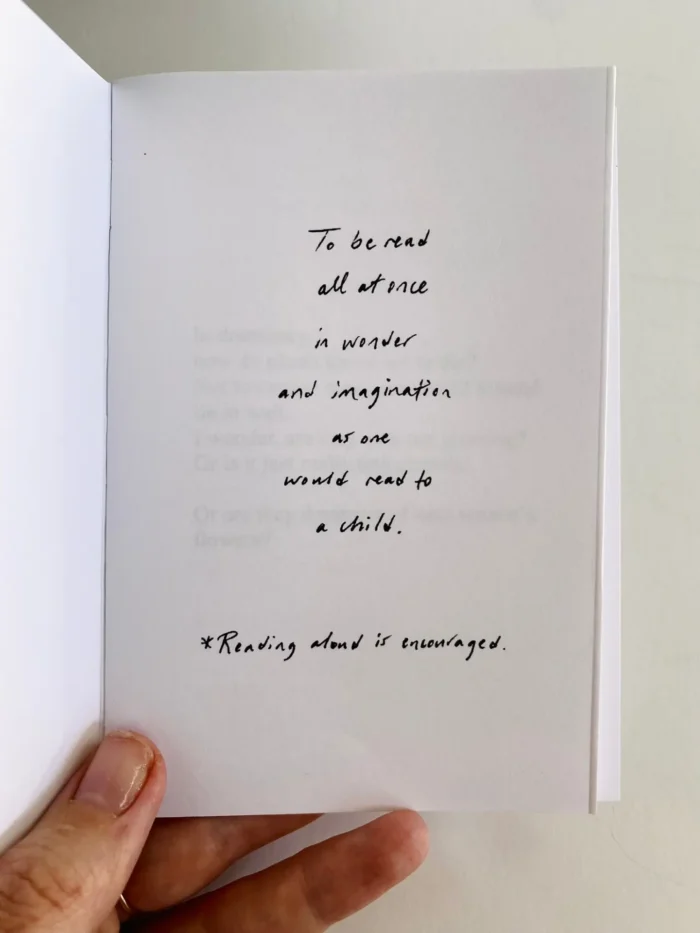 To be read
all at once
in wonder
and imagination
as one
would read to
a child.
*Reading aloud is encouraged.